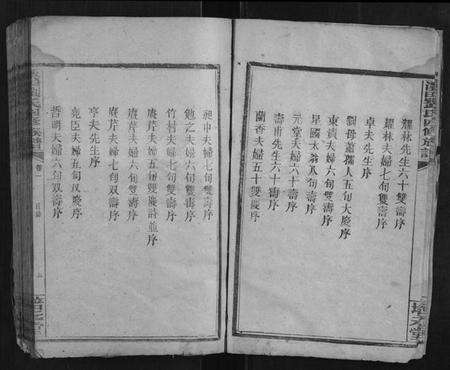 劉氏四修族譜
耀林先生六十雙壽序
耀林夫婦七旬雙壽序
卓夫先生序
劉母蕭孺人五旬大慶序
東漢夫婦六旬雙壽序
星國太翁八旬壽序
元堂夫婦六旬雙壽序
蘭香夫婦五十雙壽序
昶中夫婦六旬雙壽序
勉之夫婦六旬雙壽序
竹村夫婦七旬雙慶序
賡芹夫婦五旬雙慶詩並序
賡芹夫婦六旬雙壽序
賡芹夫婦七旬双壽序
亨夫先生序
堯臣夫婦五旬双慶序
哲明夫婦六旬双壽序